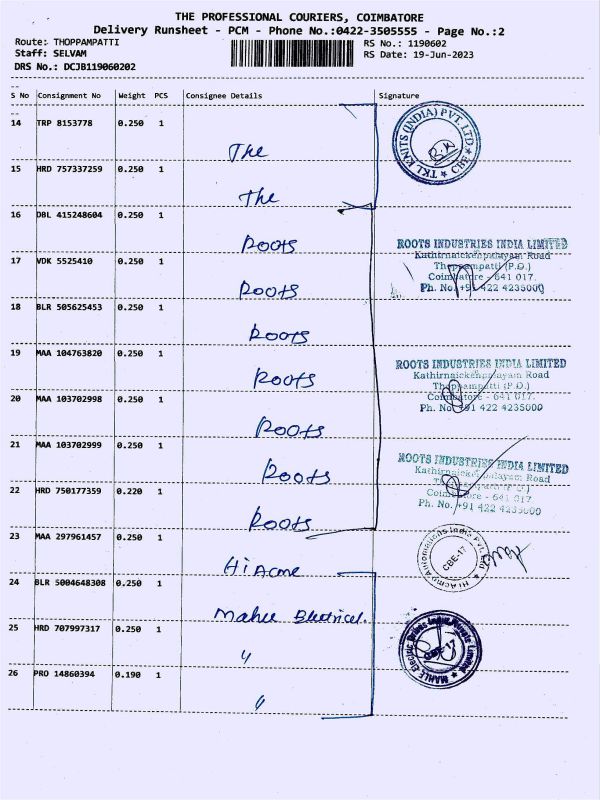 THE PROFESSIONAL COURIERS, COIMBATORE
Delivery Runsheet - PCM - Phone No.:0422-3505555 - Page No.:2
Route: THOPPAMPATTI
RS No.: 1190602
Staff: SELVAM
RS Date: 19-Jun-2023
DRS No.: DCJB119060202
S No Consignment No Weight PCS Consignee Details Signature
14 TRP 8153778 0.250 1
The
TKL KNITS (INDIA) PVT. LTD. CBE
15 HRD 757337259 0.250 1
The
16 DBL 415248604 0.250 1
Roots
ROOTS INDUSTRIES INDIA LIMITED
Kathirnaickenpalayam Road
Thoppampatti (P.O.)
Coimbatore - 641 017.
Ph. No. +91 422 4235000
17 VDK 5525410 0.250 1
Roots
18 BLR 505625453 0.250 1
Roots
19 MAA 104763820 0.250 1
Roots
ROOTS INDUSTRIES INDIA LIMITED
Kathirnaickenpalayam Road
Thoppampatti (P.O.)
Coimbatore - 641 017.
Ph. No. +91 422 4235000
20 MAA 103702998 0.250 1
Roots
21 MAA 103702999 0.250 1
Roots
ROOTS INDUSTRIES INDIA LIMITED
Kathirnaickenpalayam Road
Coimbatore - 641 017
Ph. No. +91 422 4235000
22 HRD 750177359 0.220 1
Roots
23 MAA 297961457 0.250 1
Hi Acme
CBE-17
24 BLR 5004648308 0.250 1
Mahle Electrical.
25 HRD 707997317 0.250 1
"
CBE-17
26 PRO 14860394 0.190 1
"